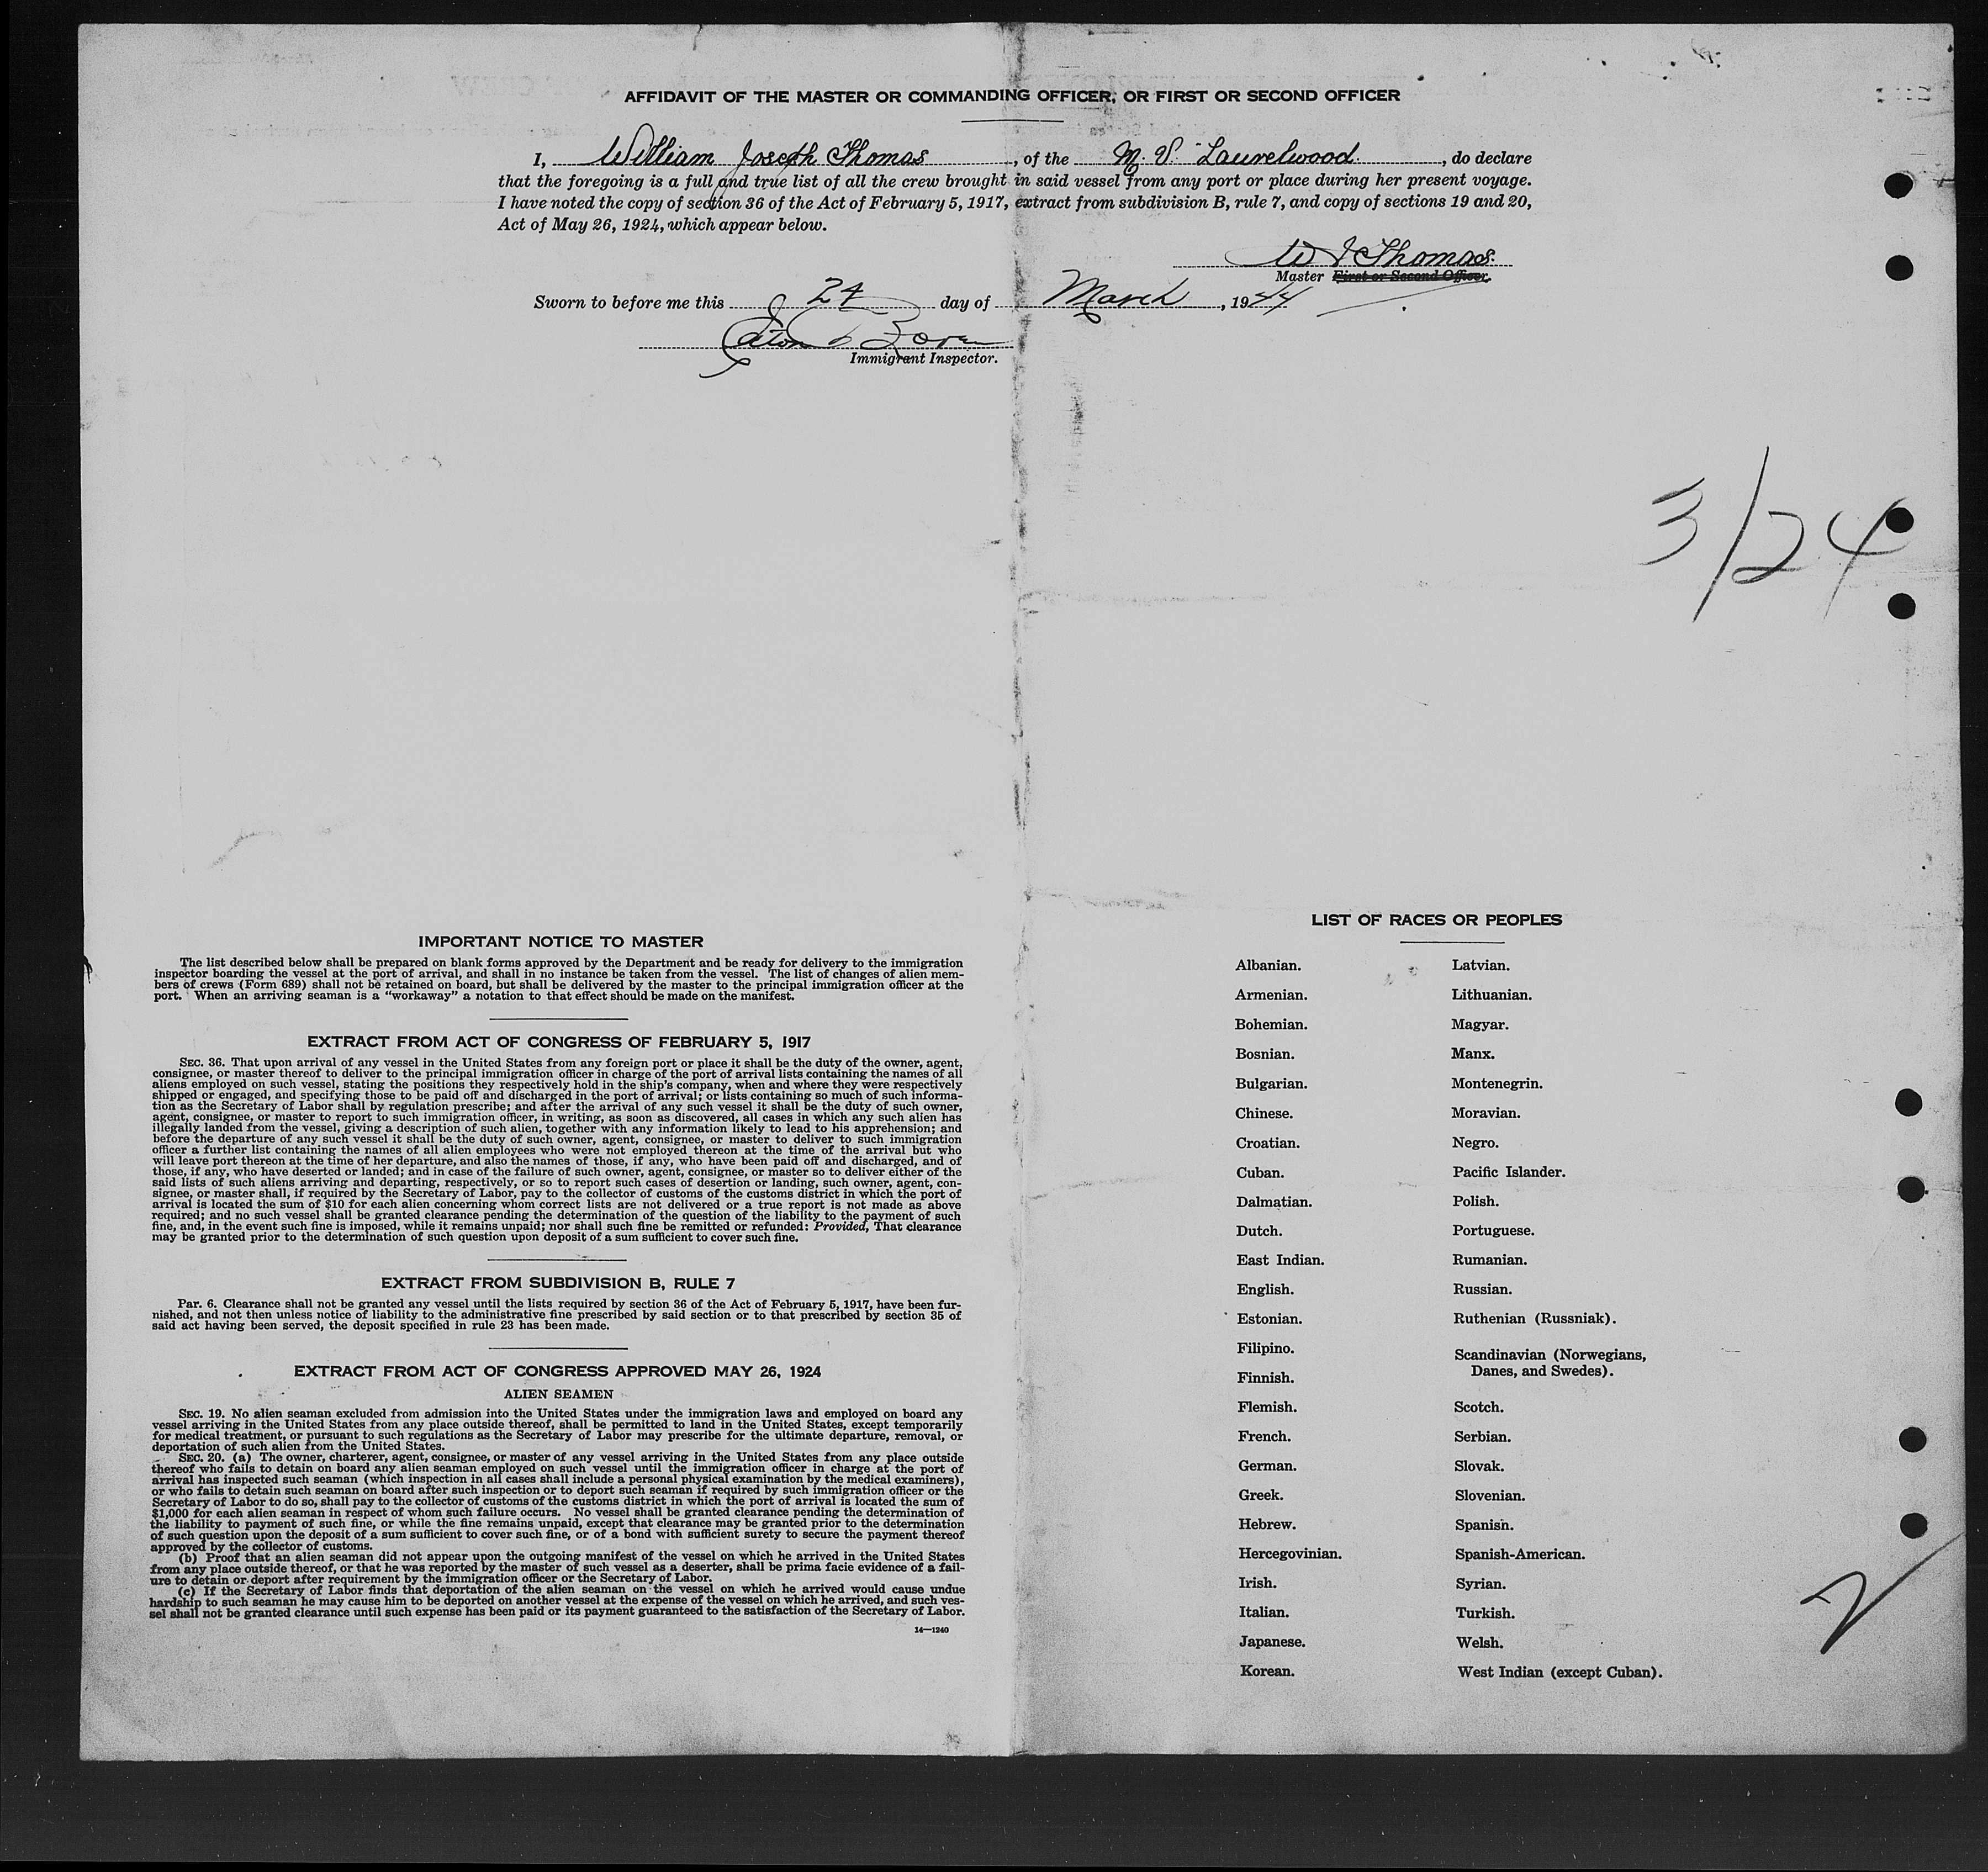 AFFIDAVIT OF THE MASTER OR COMMANDING OFFICER, OR FIRST OR SECOND OFFICER
I, William Joseph Thomas, of the M. V. Laurelwood, do declare
that the foregoing is a full and true list of all the crew brought in said vessel from any port or place during her present voyage.
I have noted the copy of section 36 of the Act of February 5, 1917, extract from subdivision B, rule 7, and copy of sections 19 and 20,
Act of May 26, 1924, which appear below.
W J Thomas
Master First or Second Officer.
Sworn to before me this 24 day of March, 1944
Immigrant Inspector.
3/24
IMPORTANT NOTICE TO MASTER
The list described below shall be prepared on blank forms approved by the Department and be ready for delivery to the immigration
inspector boarding the vessel at the port of arrival, and shall in no instance be taken from the vessel. The list of changes of alien mem-
bers of crews (Form 689) shall not be retained on board, but shall be delivered by the master to the principal immigration officer at the
port. When an arriving seaman is a "workaway" a notation to that effect should be made on the manifest.
EXTRACT FROM ACT OF CONGRESS OF FEBRUARY 5, 1917
SEC. 36. That upon arrival of any vessel in the United States from any foreign port or place it shall be the duty of the owner, agent,
consignee, or master thereof to deliver to the principal immigration officer in charge of the port of arrival lists containing the names of all
aliens employed on such vessel, stating the positions they respectively hold in the ship's company, when and where they were respectively
shipped or engaged, and specifying those to be paid off and discharged in the port of arrival; or lists containing so much of such informa-
tion as the Secretary of Labor shall by regulation prescribe; and after the arrival of any such vessel it shall be the duty of such owner,
agent, consignee, or master to report to such immigration officer, in writing, as soon as discovered, all cases in which any such alien has
illegally landed from the vessel, giving a description of such alien, together with any information likely to lead to his apprehension; and
before the departure of any such vessel it shall be the duty of such owner, agent, consignee, or master to deliver to such immigration
officer a further list containing the names of all alien employees who were not employed thereon at the time of the arrival but who
will leave port thereon at the time of her departure, and also the names of those, if any, who have been paid off and discharged, and of
those, if any, who have deserted or landed; and in case of the failure of such owner, agent, consignee, or master so to deliver either of the
said lists of such aliens arriving and departing, respectively, or so to report such cases of desertion or landing, such owner, agent, con-
signee, or master shall, if required by the Secretary of Labor, pay to the collector of customs of the customs district in which the port of
arrival is located the sum of $10 for each alien concerning whom correct lists are not delivered or a true report is not made as above
required; and no such vessel shall be granted clearance pending the determination of the question of the liability to the payment of such
fine, and, in the event such fine is imposed, while it remains unpaid; nor shall such fine be remitted or refunded: Provided, That clearance
may be granted prior to the determination of such question upon deposit of a sum sufficient to cover such fine.
EXTRACT FROM SUBDIVISION B, RULE 7
Par. 6. Clearance shall not be granted any vessel until the lists required by section 36 of the Act of February 5, 1917, have been fur-
nished, and not then unless notice of liability to the administrative fine prescribed by said section or to that prescribed by section 35 of
said act having been served, the deposit specified in rule 23 has been made.
EXTRACT FROM ACT OF CONGRESS APPROVED MAY 26, 1924
ALIEN SEAMEN
SEC. 19. No alien seaman excluded from admission into the United States under the immigration laws and employed on board any
vessel arriving in the United States from any place outside thereof, shall be permitted to land in the United States, except temporarily
for medical treatment, or pursuant to such regulations as the Secretary of Labor may prescribe for the ultimate departure, removal, or
deportation of such alien from the United States.
SEC. 20. (a) The owner, charterer, agent, consignee, or master of any vessel arriving in the United States from any place outside
thereof who fails to detain on board any alien seaman employed on such vessel until the immigration officer in charge at the port of
arrival has inspected such seaman (which inspection in all cases shall include a personal physical examination by the medical examiners),
or who fails to detain such seaman on board after such inspection or to deport such seaman if required by such immigration officer or the
Secretary of Labor to do so, shall pay to the collector of customs of the customs district in which the port of arrival is located the sum of
$1,000 for each alien seaman in respect of whom such failure occurs. No vessel shall be granted clearance pending the determination of
the liability to payment of such fine, or while the fine remains unpaid, except that clearance may be granted prior to the determination
of such question upon the deposit of a sum sufficient to cover such fine, or of a bond with sufficient surety to secure the payment thereof
approved by the collector of customs.
(b) Proof that an alien seaman did not appear upon the outgoing manifest of the vessel on which he arrived in the United States
from any place outside thereof, or that he was reported by the master of such vessel as a deserter, shall be prima facie evidence of a fail-
ure to detain or deport after requirement by the immigration officer or the Secretary of Labor.
(c) If the Secretary of Labor finds that deportation of the alien seaman on the vessel on which he arrived would cause undue
hardship to such seaman he may cause him to be deported on another vessel at the expense of the vessel on which he arrived, and such ves-
sel shall not be granted clearance until such expense has been paid or its payment guaranteed to the satisfaction of the Secretary of Labor.
14—1240
LIST OF RACES OR PEOPLES
Albanian.
Armenian.
Bohemian.
Bosnian.
Bulgarian.
Chinese.
Croatian.
Cuban.
Dalmatian.
Dutch.
East Indian.
English.
Estonian.
Filipino.
Finnish.
Flemish.
French.
German.
Greek.
Hebrew.
Hercegovinian.
Irish.
Italian.
Japanese.
Korean.
Latvian.
Lithuanian.
Magyar.
Manx.
Montenegrin.
Moravian.
Negro.
Pacific Islander.
Polish.
Portuguese.
Rumanian.
Russian.
Ruthenian (Russniak).
Scandinavian (Norwegians,
Danes, and Swedes).
Scotch.
Serbian.
Slovak.
Slovenian.
Spanish.
Spanish-American.
Syrian.
Turkish.
Welsh.
West Indian (except Cuban).